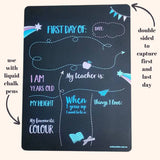 FIRST DAY OF:
DATE:
double
sided to
capture
first
and
last
day
use
with
liquid
chalk
pens
I AM
YEARS OLD
My teacher is:
MY HEIGHT
When
I grow up
I want to be a:
Things I love:
My favourite
COLOUR